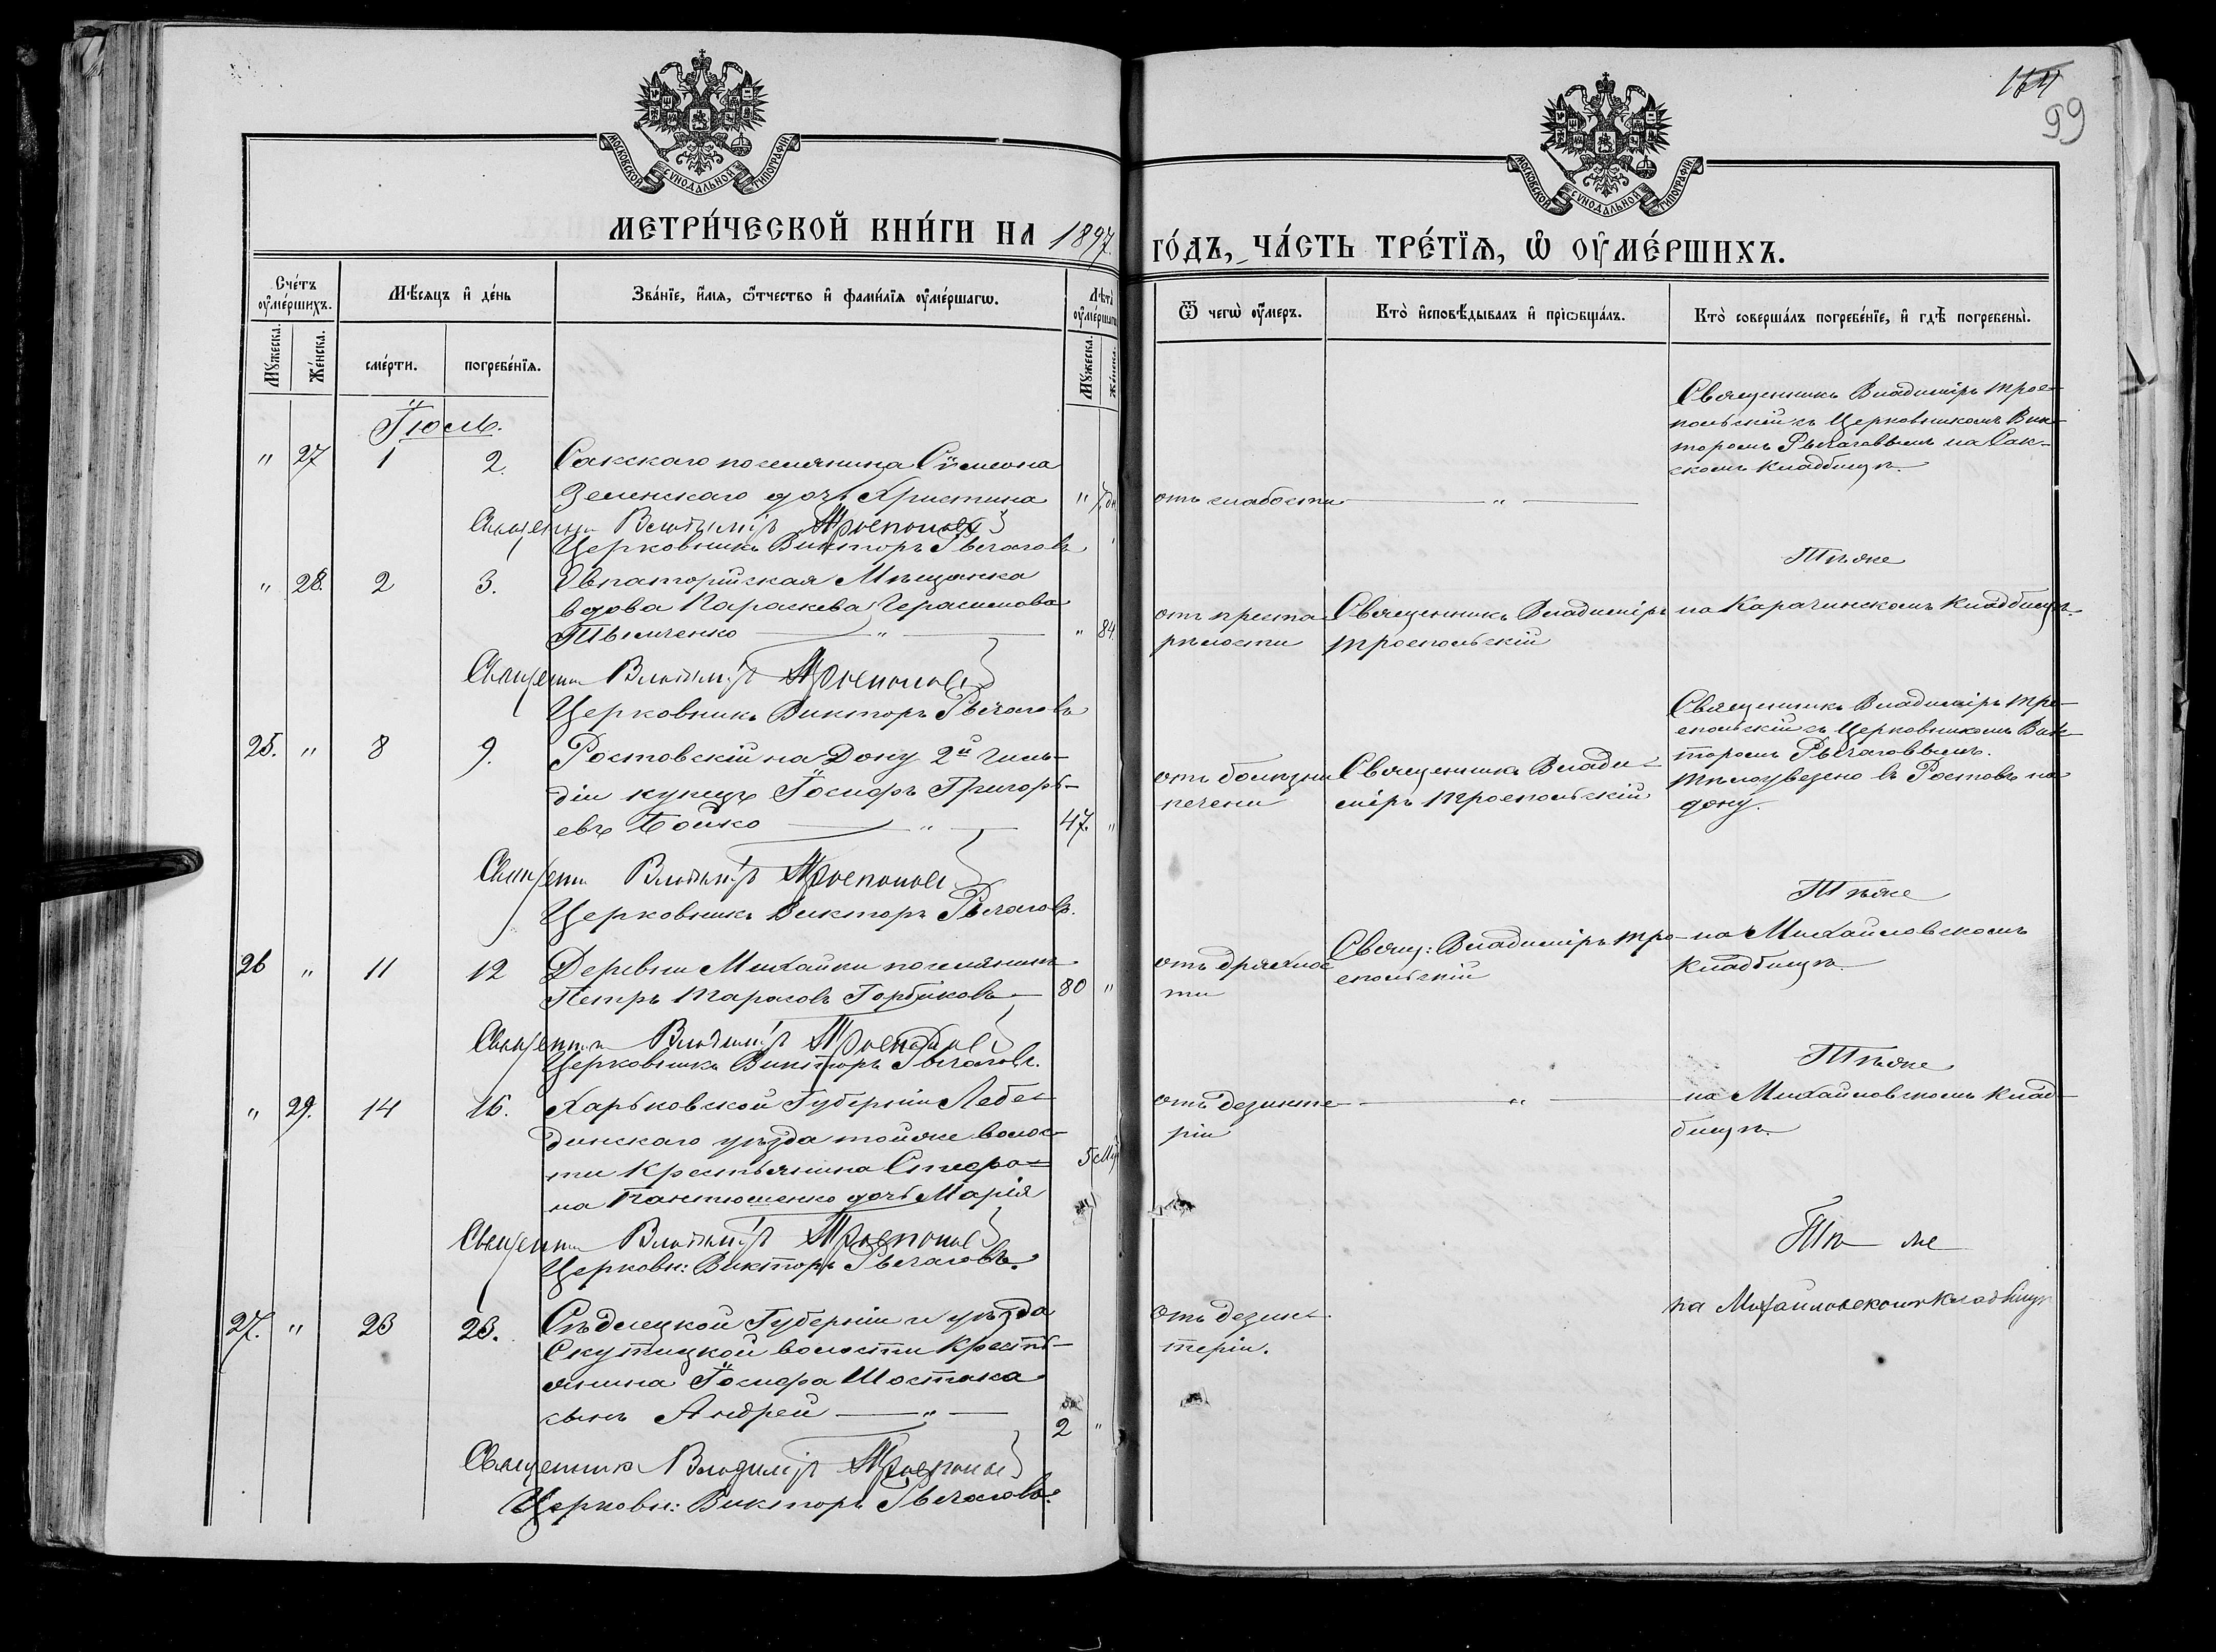 164
99
МОСКОВСКОЙ СѴНОДАЛЬНОЙ ТИПОГРАФІИ
МОСКОВСКОЙ СѴНОДАЛЬНОЙ ТИПОГРАФІИ
МЕТРИ́ЧЕСКОЙ КНИ́ГИ НА 1897.
ГО́ДЪ, ЧА́СТЬ ТРЕ́ТЇѦ, Ѡ҆ ОУ҆МЕ́РШИХЪ.
Сче́тъ оу҆ме́ршихъ.
Мꙋ́жеска.
Же́нска.
Мѣ́сѧцъ и҆ де́нь
сме́рти.
погребе́нїѧ.
Зва́нїе, и҆́мѧ, ѻ҆́тчество и҆ фами́лїѧ оу҆ме́ршагѡ.
Лѣ́та оу҆ме́ршагѡ
Мꙋ́жеска.
Же́нска.
Ѿ чегѡ̀ оу҆́меръ.
Кто̀ и҆сповѣ́дывалъ и҆ прїѡбща́лъ.
Кто̀ соверша́лъ погребе́нїе, и҆ гдѣ̀ погребены̀.
Іюль.
" 27 1 2. Сакскаго поселянина Сѵмеона
Зеленскаго дочь Христина " 7 дн
отъ слабости — " —
Священникъ Владиміръ Трое-
польскій съ Церковникомъ Вик-
торомъ Рычаговымъ на Сак-
скомъ кладбищѣ.
Священникъ Владиміръ Троепольскій
Церковникъ Викторъ Рычаговъ
" 28. 2 3. Евпаторійская Мѣщанка
вдова Параскева Герасимова
Тымченко — " — " 84.
отъ преста-
рѣлости
Священникъ Владиміръ
Троепольскій
Тѣже
на Карачинскомъ Кладбищѣ.
Священникъ Владиміръ Троепольскій
Церковникъ Викторъ Рычаговъ
25. " 8 9. Ростовскій на Дону 2й Гиль-
діи купецъ Іосифъ Григорь-
евъ Бойко — " — 47. "
отъ болѣзни
печени
Священникъ Влади-
міръ Троепольскій
Священникъ Владиміръ Тро-
епольскій съ Церковникомъ Вик-
торомъ Рычаговымъ.
Тѣло увезено въ Ростовъ на
дону.
Священникъ Владиміръ Троепольскій
Церковникъ Викторъ Рычаговъ.
26 " 11 12 Деревни Михайловки поселянинъ
Петръ Тарасовъ Горбиковъ — 80 "
отъ дряхлос
ти
Свящ: Владиміръ Тро-
епольскій
Тѣже
на Михайловскомъ
Кладбищѣ.
Священникъ Владиміръ Троепольскій
Церковникъ Викторъ Рычаговъ.
" 29. 14 16. Харьковской Губерніи Лебе-
динскаго уѣзда тойже волос-
ти Крестьянина Стефа-
на Пантюшенко дочь Марія
5 мѣ
отъ дезинте-
ріи
— " —
Тѣже
на Михайловскомъ Клад-
бищѣ.
Священникъ Владиміръ Троепольскій
Церковн: Викторъ Рычаговъ.
27. " 23 23. Сѣдлецкой Губерніи и уѣзда
волости Кресть-
янина Іосифа Шостака
сынъ Андрей — " — 2 "
отъ дезин-
теріи.
Тѣ же
на Михайловскомъ Кладбищѣ
Священникъ Владиміръ Троепольскій
Церковн: Викторъ Рычаговъ.